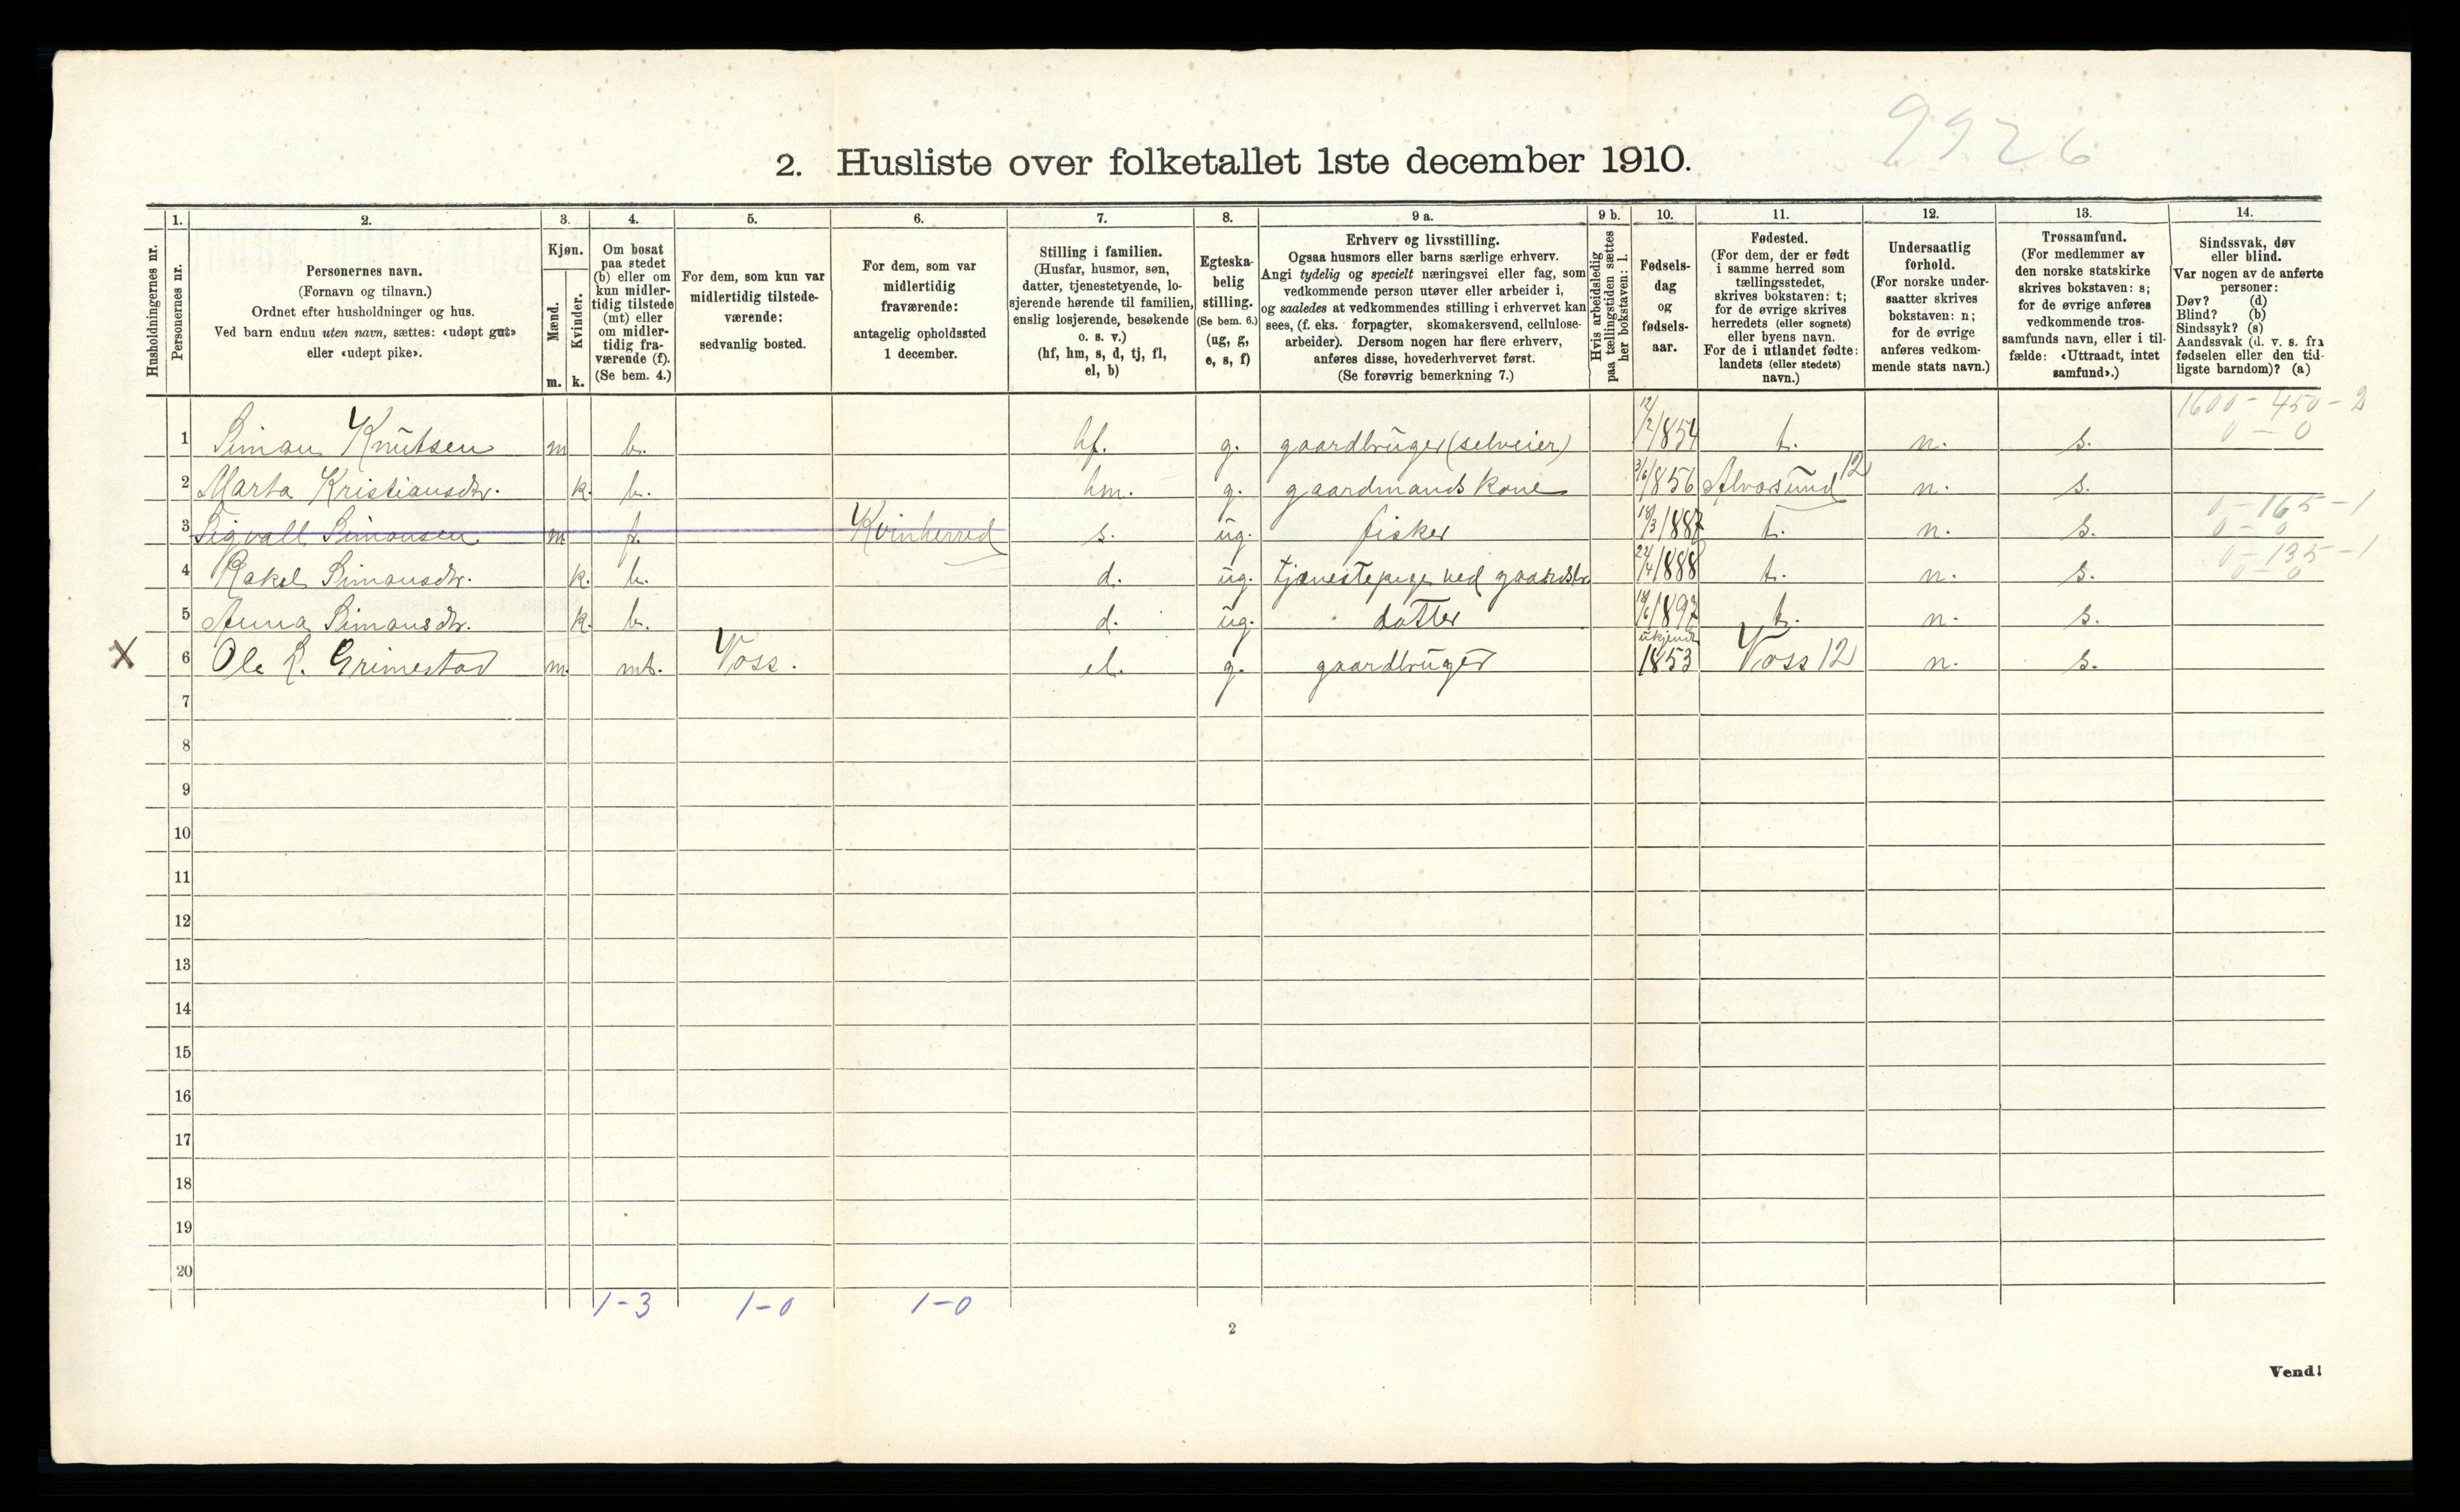 9926
2. Husliste over folketallet 1ste december 1910.
1. 2. 3. 4. 5. 6. 7. 8. 9 a. 9 b. 10. 11. 12. 13. 14.
Husholdningernes nr.
Personernes nr.
Personernes navn.
(Fornavn og tilnavn.)
Ordnet efter husholdninger og hus.
Ved barn endnu uten navn, sættes: «udøpt gut»
eller «udøpt pike».
Kjøn.
Mænd.
Kvinder.
m. k.
Om bosat
paa stedet
(b) eller om
kun midler-
tidig tilstede
(mt) eller
om midler-
tidig fra-
værende (f).
(Se bem. 4.)
For dem, som kun var
midlertidig tilstede-
værende:
sedvanlig bosted.
For dem, som var
midlertidig
fraværende:
antagelig opholdssted
1 december.
Stilling i familien.
(Husfar, husmor, søn,
datter, tjenestetyende, lo-
sjerende hørende til familien,
enslig losjerende, besøkende
o. s. v.)
(hf, hm, s, d, tj, fl,
el, b)
Egteska-
belig
stilling.
(Se bem. 6.)
(ug, g,
e, s, f)
Erhverv og livsstilling.
Ogsaa husmors eller barns særlige erhverv.
Angi tydelig og specielt næringsvei eller fag, som
vedkommende person utøver eller arbeider i,
og saaledes at vedkommendes stilling i erhvervet kan
sees, (f. eks. forpagter, skomakersvend, cellulose-
arbeider). Dersom nogen har flere erhverv,
anføres disse, hovederhvervet først.
(Se forøvrig bemerkning 7.)
Hvis arbeidsledig
paa tællingstiden sættes
her bokstaven: l.
Fødsels-
dag
og
fødsels-
aar.
Fødested.
(For dem, der er født
i samme herred som
tællingsstedet,
skrives bokstaven: t;
for de øvrige skrives
herredets (eller sognets)
eller byens navn.
For de i utlandet fødte:
landets (eller stedets)
navn.)
Undersaatlig
forhold.
(For norske under-
saatter skrives
bokstaven: n;
for de øvrige
anføres vedkom-
mende stats navn.)
Trossamfund.
(For medlemmer av
den norske statskirke
skrives bokstaven: s;
for de øvrige anføres
vedkommende tros-
samfunds navn, eller i til-
fælde: «Uttraadt, intet
samfund».)
Sindssvak, døv
eller blind.
Var nogen av de anførte
personer:
Døv? (d)
Blind? (b)
Sindssyk? (s)
Aandssvak (d. v. s. fra
fødselen eller den tid-
ligste barndom)? (a)
1600 - 450 - 2
0 - 0
1 Simon Knutsen m b. hf. g. gaardbruger (selveier) 12/2 1854 t. n. s.
2 Marta Kristiansdtr. k. b. hm. g. gaardmands kone 3/6 1856 Alvøsund 12 n. s.
0 - 165 - 1
0 - 0
3 Sigvall Simonsen m f. Kvinherred s. ug. fisker 18/3 1887 t. n. s.
0 - 135 - 1
0 - 0
4 Rakel Simonsdtr. k. b. d. ug. tjenestepige ved gaardsbr. 24/4 1888 t. n. s.
5 Anna Simonsdtr. k. b. d. ug. datter 18/6 1897 t. n. s.
X 6 Ole L. Grimestad m. mt. Voss. el. g. gaardbruger ukjendt 1853 Voss 12 n. s.
7
8
9
10
11
12
13
14
15
16
17
18
19
20
1-3 1-0 1-0
2
Vend!